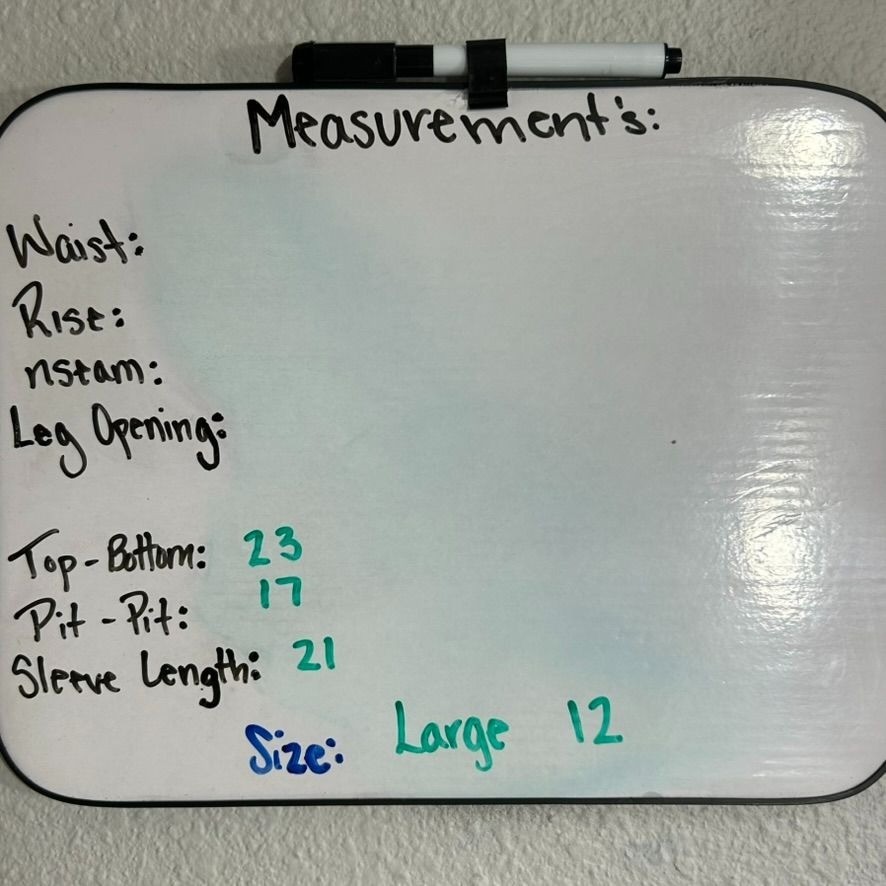 Measurement's:
Waist:
Rise:
nseam:
Leg Opening:
Top-Bottom: 23
Pit-Pit: 17
Sleeve Length: 21
Size: Large 12